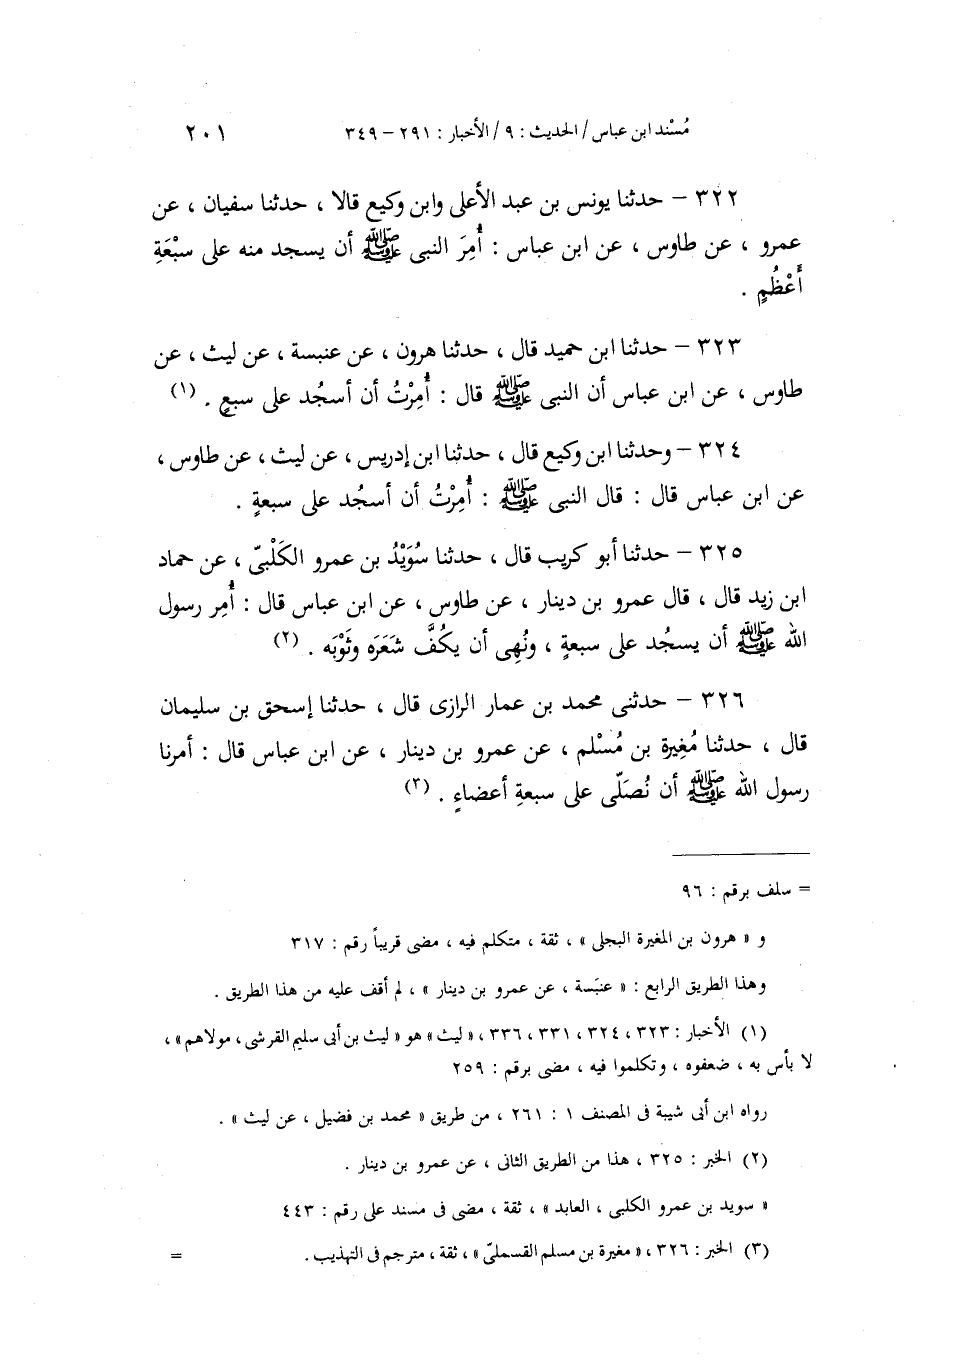 مُسْند ابن عباس / الحديث : ٩ / الأخبار : ٢٩١ – ٣٤٩ ٢٠١
٣٢٢ – حدثنا يونس بن عبد الأعلى وابن وكيع قالا ، حدثنا سفيان ، عن
عمرو ، عن طاوس ، عن ابن عباس : أُمِرَ النبى ﷺ أن يسجد منه على سبْعَةِ
أَعْظُمٍ .
٣٢٣ – حدثنا ابن حميد قال ، حدثنا هرون ، عن عنبسة ، عن ليث ، عن
طاوس ، عن ابن عباس أن النبى ﷺ قال : أُمِرْتُ أن أسجُد على سبعٍ . (١)
٣٢٤ – وحدثنا ابن وكيع قال ، حدثنا ابن إدريس ، عن ليث ، عن طاوس ،
عن ابن عباس قال : قال النبى ﷺ : أُمِرْتُ أن أسجُد على سبعةٍ .
٣٢٥ – حدثنا أبو كريب قال ، حدثنا سُوَيْدُ بن عمرو الكَلْبىّ ، عن حماد
ابن زيد قال ، قال عمرو بن دينار ، عن طاوس ، عن ابن عباس قال : أُمِر رسول
الله ﷺ أن يسجُد على سبعةٍ ، ونُهِى أن يكُفَّ شَعَرَه وثَوْبَه . (٢)
٣٢٦ – حدثنى محمد بن عمار الرازى قال ، حدثنا إسحق بن سليمان
قال ، حدثنا مُغِيرة بن مُسْلم ، عن عمرو بن دينار ، عن ابن عباس قال : أمرنا
رسول الله ﷺ أن نُصَلّى على سبعةِ أعضاءٍ . (٣)
= سلف برقم : ٩٦
و « هرون بن المغيرة البجلى » ، ثقة ، متكلم فيه ، مضى قريباً رقم : ٣١٧
وهذا الطريق الرابع : « عنبَسة ، عن عمرو بن دينار » ، لم أقف عليه من هذا الطريق .
(١) الأخبار : ٣٢٣ ، ٣٢٤ ، ٣٣١ ، ٣٣٦ ، « ليث » هو « ليث بن أبى سليم القرشى ، مولاهم » ،
لا بأس به ، ضعفوه ، وتكلموا فيه ، مضى برقم : ٢٥٩
رواه ابن أبى شيبة فى المصنف ١ : ٢٦١ ، من طريق « محمد بن فضيل ، عن ليث » .
(٢) الخبر : ٣٢٥ ، هذا من الطريق الثانى ، عن عمرو بن دينار .
« سويد بن عمرو الكلبى ، العابد » ، ثقة ، مضى فى مسند على رقم : ٤٤٣
(٣) الخبر : ٣٢٦ ، « مغيرة بن مسلم القسملىّ » ، ثقة ، مترجم فى التهذيب . =